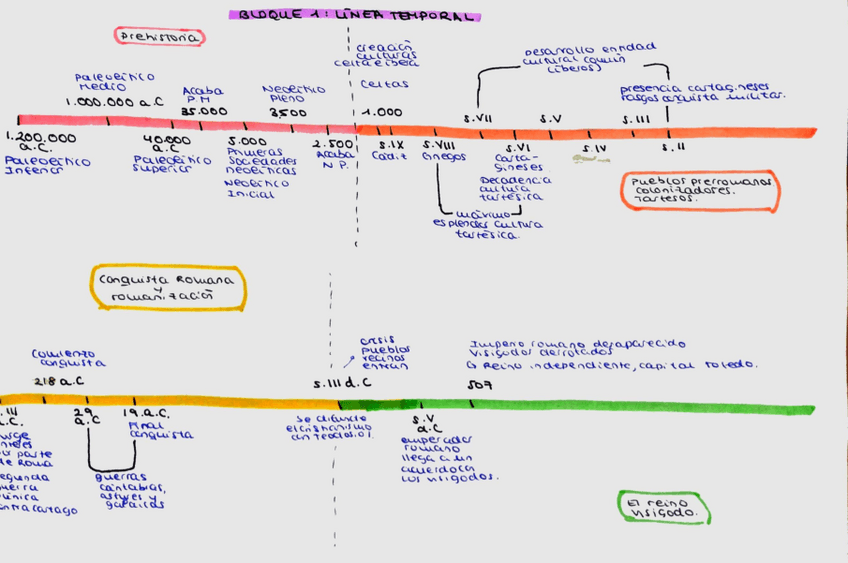 BLOQUE 1: LÍNEA TEMPORAL
Prehistoria
Paleolítico
Medio
1.000.000 a.C
Acaba
P.M
35.000
Neolítico
Pleno
3,500
creación
culturas
celta e íbera
Celtas
1.000
Desarrollo entidad
cultural común
(íberos)
presencia cartagineses
rasgos conquista militar.
s.VII
s.V
s.III
1.200.000
a.C.
Paleolítico
Inferior
40.000
a.C
Paleolítico
Superior
5.000
Primeras
Sociedades
neolíticas
Neolítico
Inicial
2.500
Acaba
N P.
s.IX
Cádiz
s.VIII
Griegos
s.VI
Carta-
gineses
Decadencia
cultura
tartésica
s.IV
s.II
máximo
esplendor cultura
tartésica.
Pueblos prerromanos
colonizadores.
Tartesos.
Conquista Romana
y
romanización
Comienzo
conquista
218 a.C
crisis
pueblos
vecinos
entran
s.III d.C
Imperio romano desaparecido
Visigodos derrotados
Reino independiente, capital Toledo.
507
.III
.C.
urge
por parte
de Roma
egunda
uerra
única
ontra Cartago
29
a.C
19.a.C.
Final
conquista
guerras
cántabras,
astures y
galaicas
Se difunde
el cristianismo
con Teodosio I.
s.V
d.C
emperador
romano
llega a un
acuerdo con
los visigodos.
El reino
visigodo.